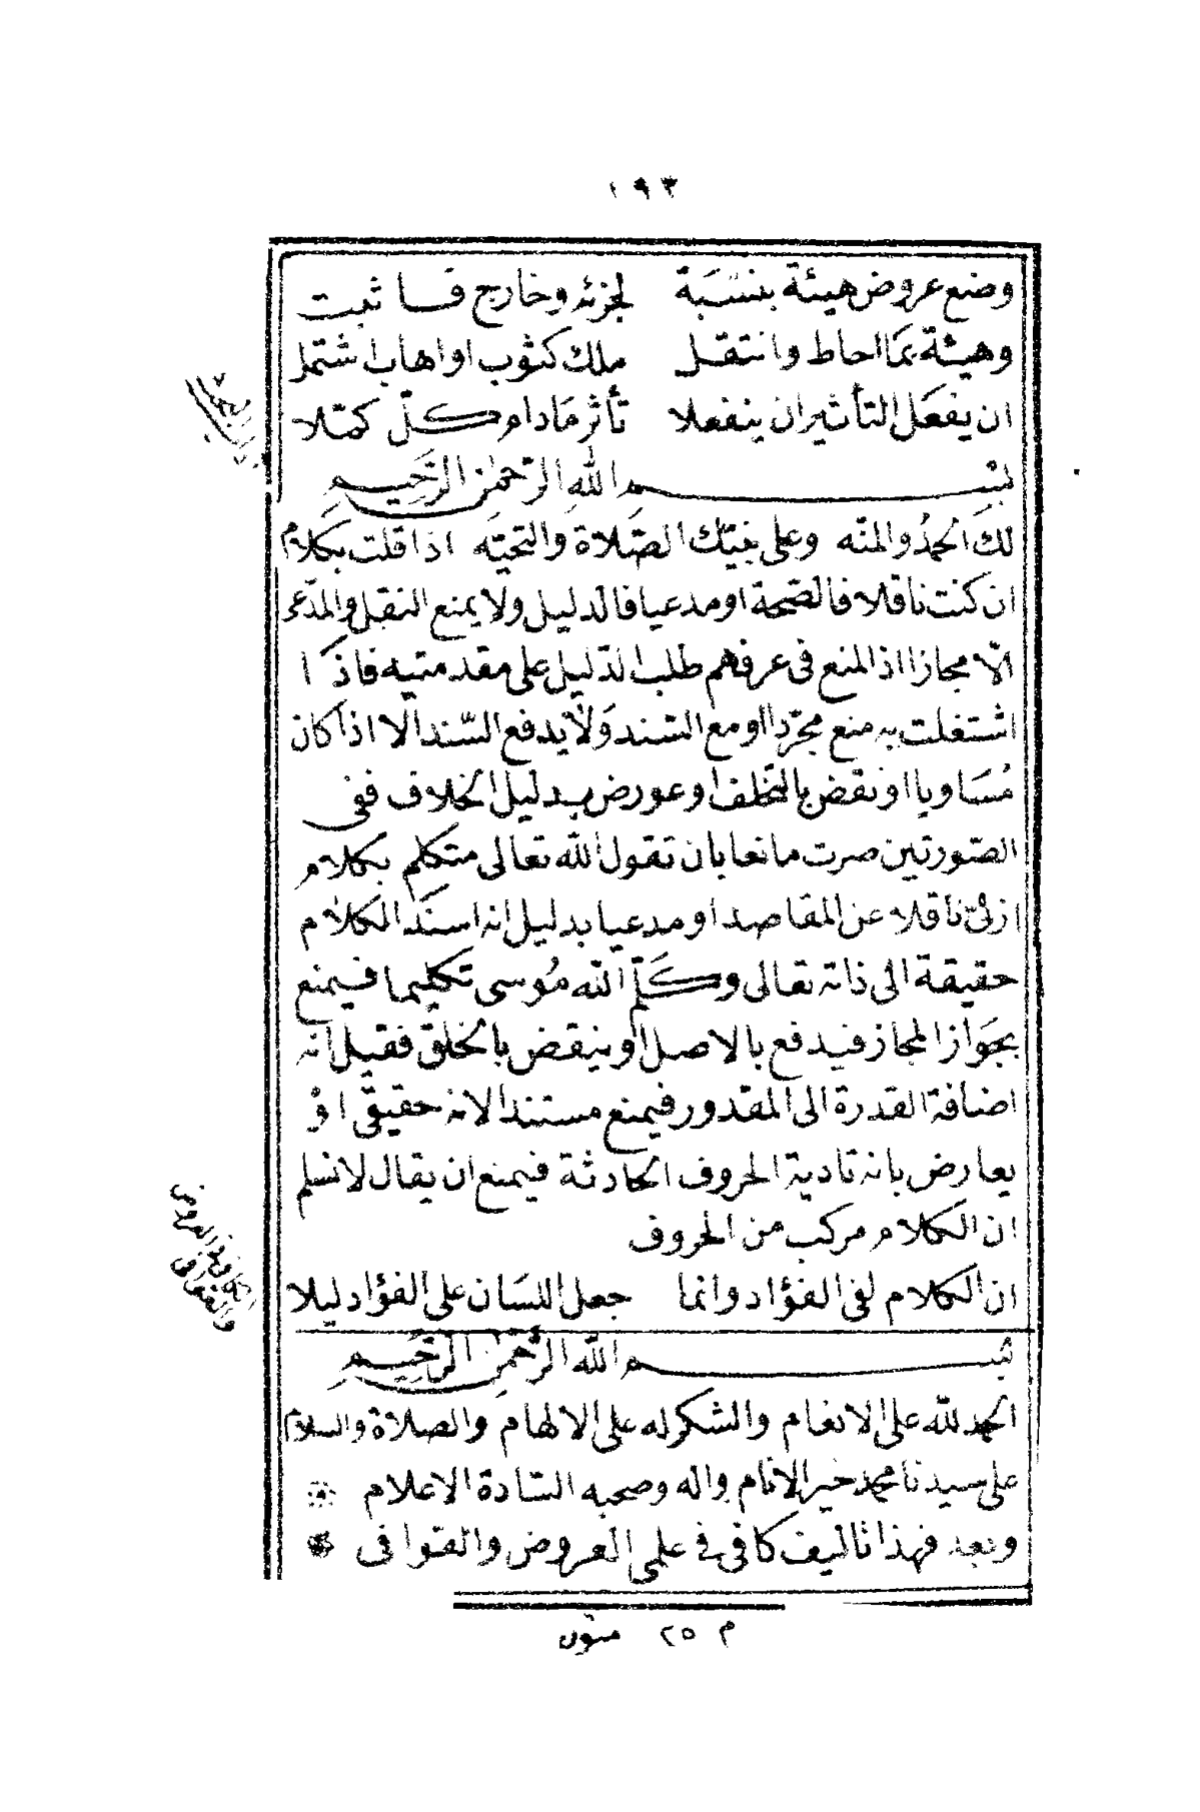 ١٩٣
وضع عروض هيئة بنسبة لجزئه وخارج فاثبت
وهيئة بما احاط وانتقل ملك كثوب او اهاب اشتمل
ان يفعل التأثير ان ينفعلا تأثر مادام كلّ كمّلا
بسم الله الرحمن الرحيم
لك الحمدُ والمنّه وعلى نبيّك الصّلاة والتحيّه اذا قلت بكلام
ان كنت ناقلا فالصّحة او مدعيا فالدليل ولا يمنع النقل والمدّعى
الّا مجازا اذ المنع فى عرفهم طلب الدّليل على مقدمتيه فاذا
اشتغلت به منع مجرّدا او مع السّند ولا يدفع السّند الا اذا كان
مُسَاويا او نقض بالتخلف او عورض بدليل الخلاف ففى
الصّورتين صرت مانعا بان تقول الله تعالى متكلم بكلام
ازلىّ ناقلا عن المقاصد او مدعيا بدليل انه اسنَد الكلام
حقيقة الى ذاته تعالى وكلّم الله مُوسى تكليما فيمنع
بجَواز المجاز فيدفع بالاصل او ينقض بالخلق فقيل انه
اضافة القدرة الى المقدور فيمنع مستندا لانه حقيقىّ اوْ
يعارض بانه تادية الحروف الحادثة فيمنع ان يقال لا نسلم
ان الكلام مركب من الحروف
ان الكلام لفى الفؤاد وانما جعل اللسَان على الفؤاد ليلا
بسم الله الرّحمن الرّحيم
الحمد لله على الانعام والشكر له على الالهام والصلاة والسلام
على سيدنا محمد خير الانام واله وصحبه السّادة الاعلام *
وبعد فهذا تأليف كافى فى علمى العروض والقوافى *
الكافى فى العروض
والقوافى
م ٢٥ متون